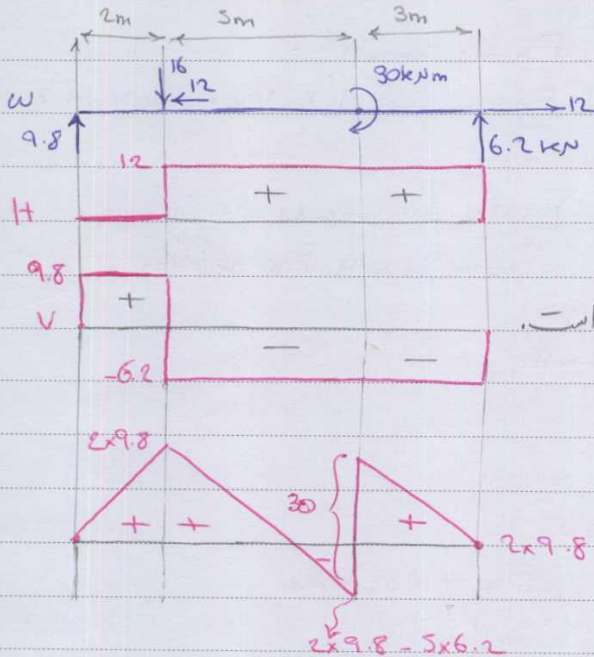 2m 5m 3m
16
12
30kNm
w
12
9.8
6.2 kN
12
H
+ +
9.8
V
+
- -
-6.2
2×9.8
30
+ + - +
2×9.8
2×9.8-5×6.2